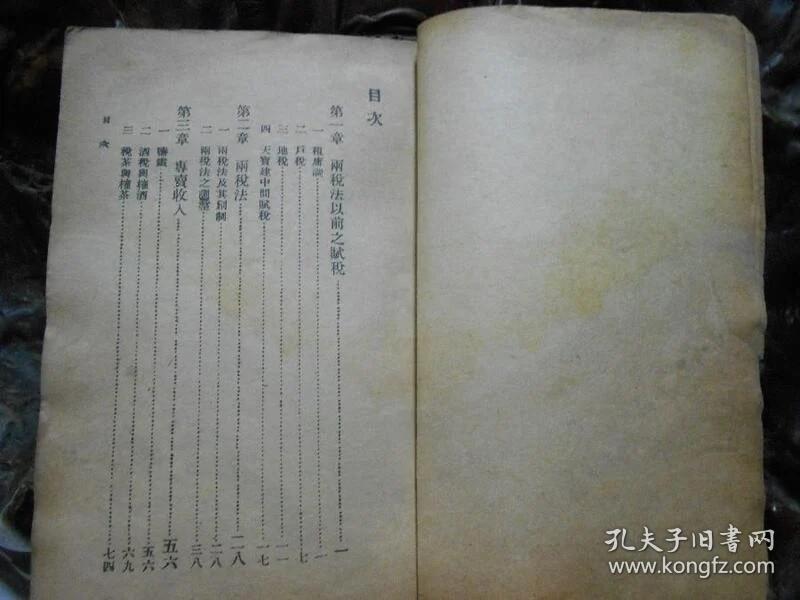 目次
第一章 兩稅法以前之賦稅……一
一 租庸調……一
二 戶稅……七
三 地稅……一一
四 天寶建中間賦稅……一七
第二章 兩稅法……二八
一 兩稅法及其創制……二八
二 兩稅法之……三八
第三章 專賣收入……五六
一 鹽鐵……五六
二 酒稅與榷酒……六九
三 稅茶與榷茶……七四
目次
孔夫子旧书网
www.kongfz.com